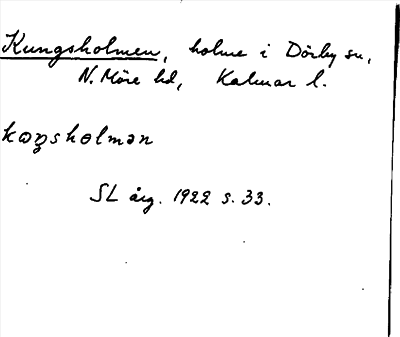 Kungsholmen, holme i Dörby sn,
N. Möre hd, Kalmar l.
kɷŋsholmən
SL årg. 1922 s. 33.